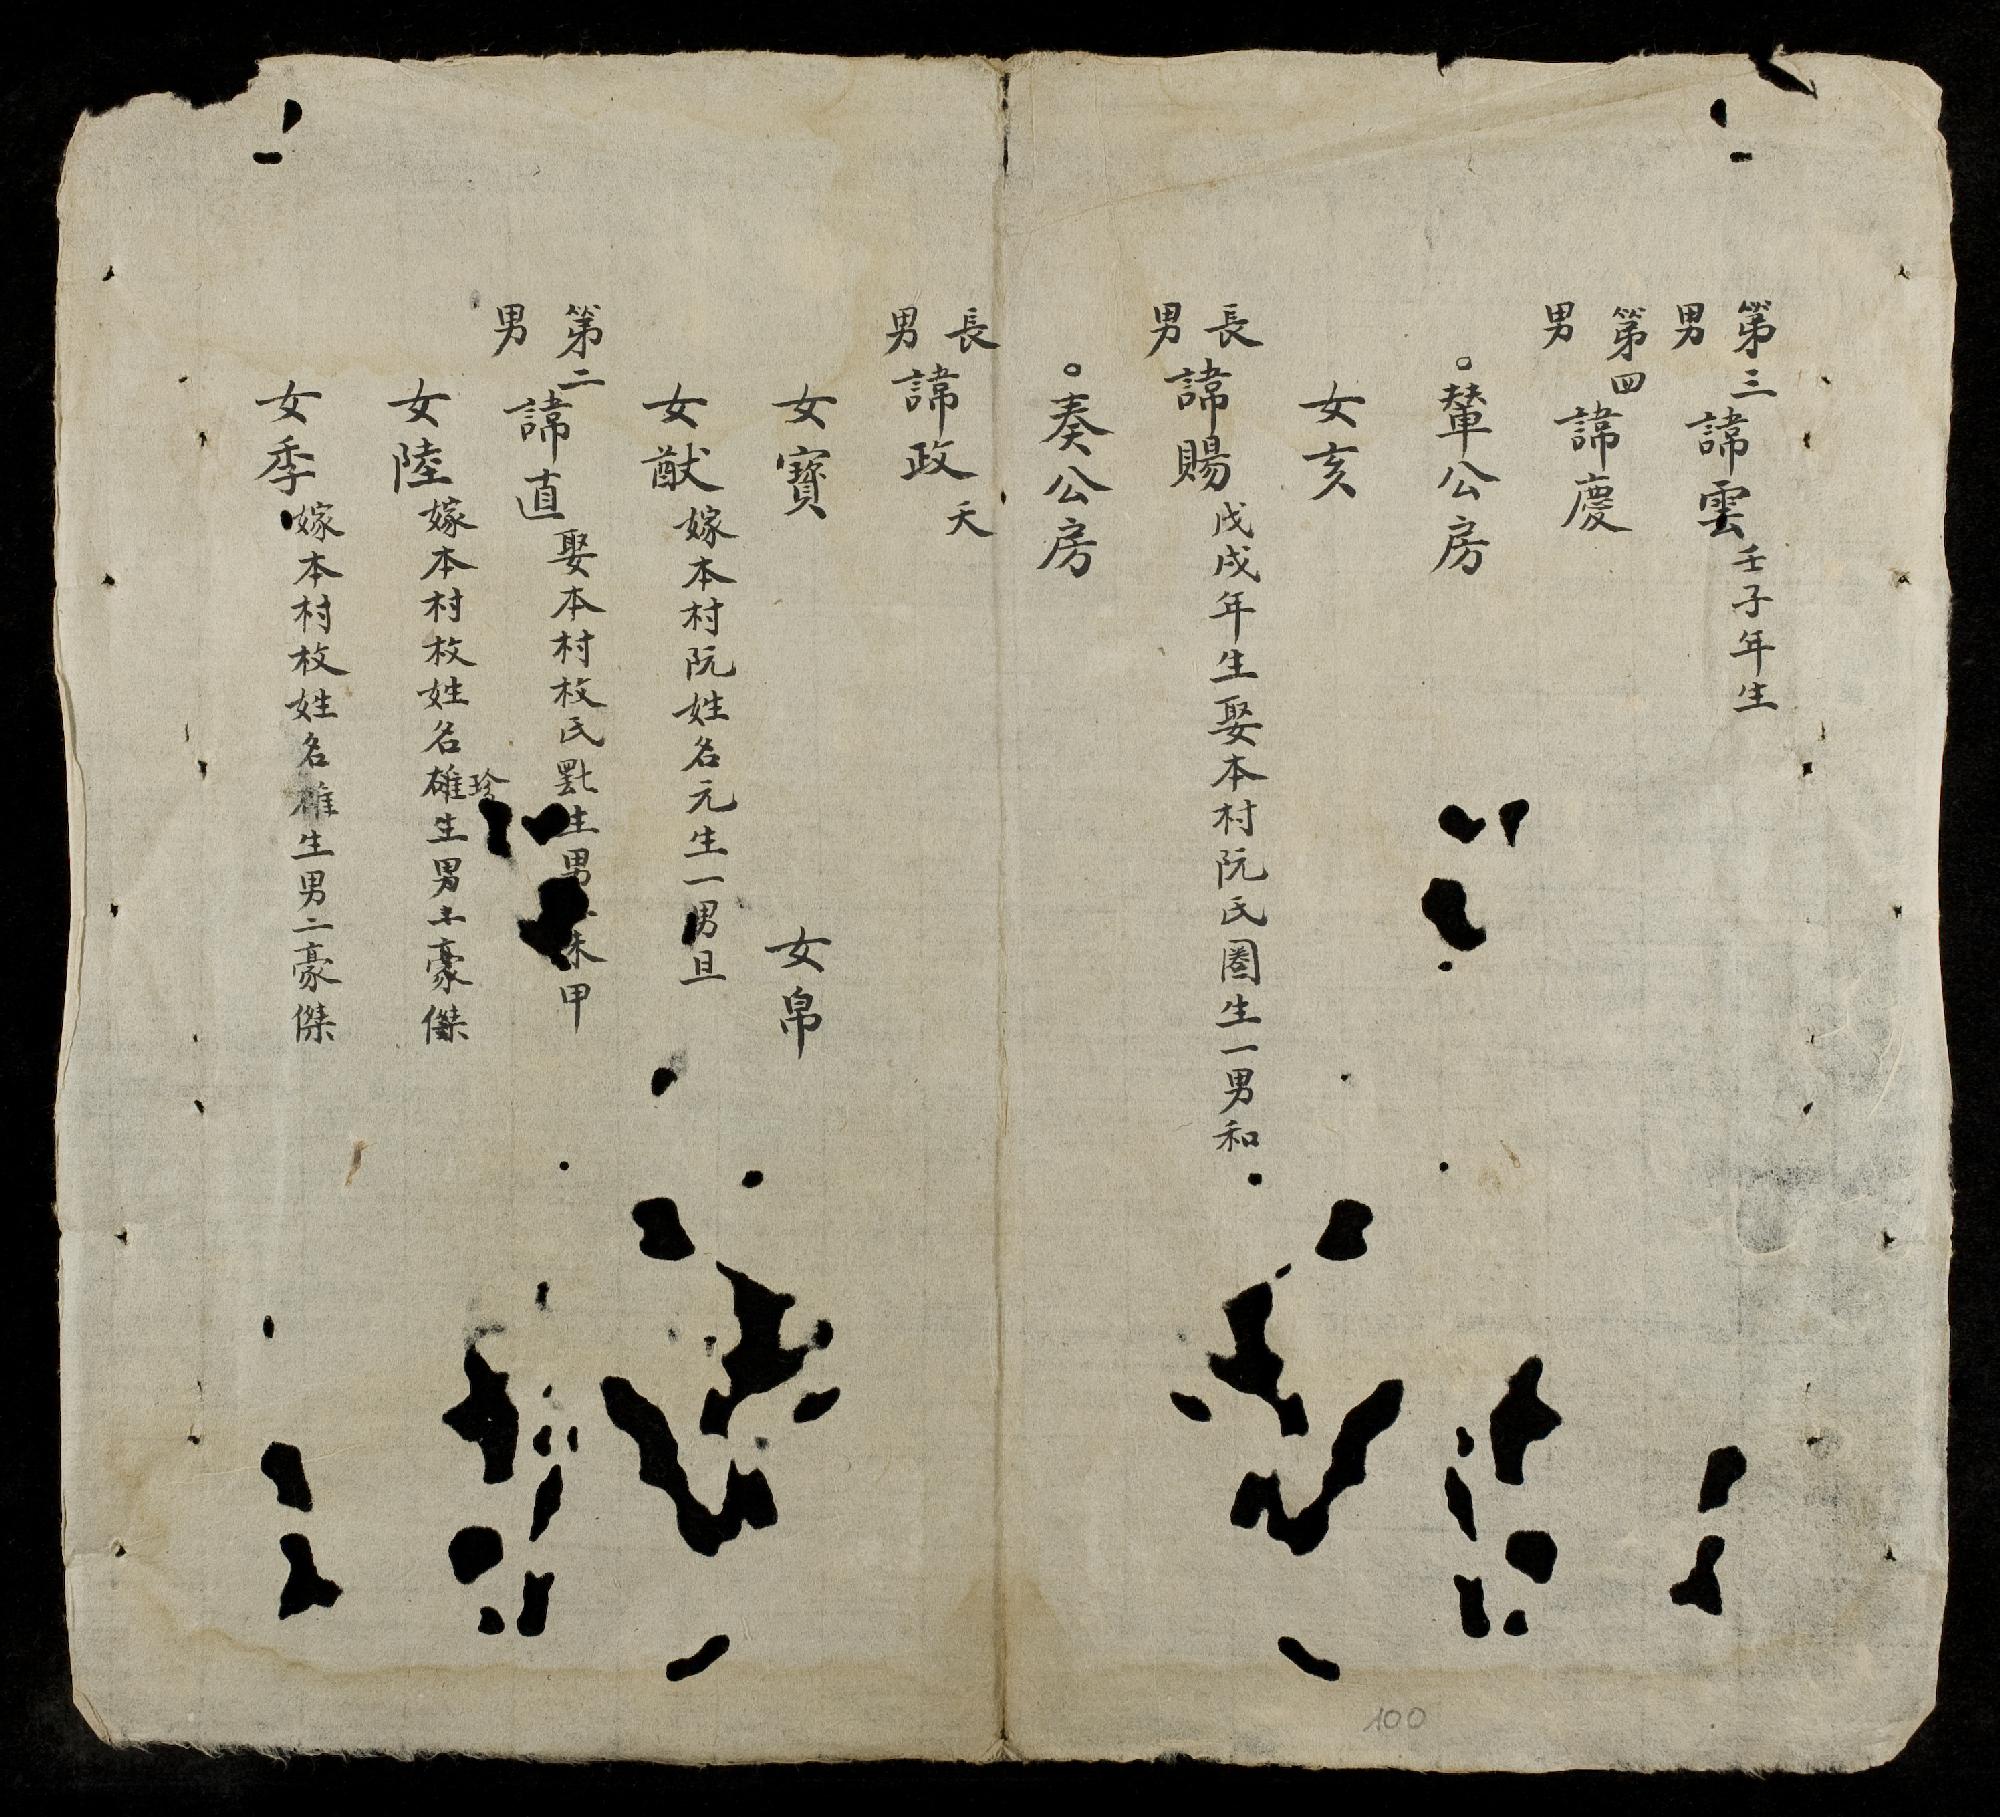 第三男諱雲壬子年生
第四男諱慶
○輦公房
女亥
長男諱賜戊戌年生娶本村阮氏圈生一男和
○奏公房
長男諱政夭
女寶 女帛
女猷嫁本村阮姓名元生一男旦
第二男諱直娶本村枚氏生男朱甲
女陸嫁本村枚姓名雄珍生男豪傑
女季嫁本村枚姓名雄生男二豪傑
100